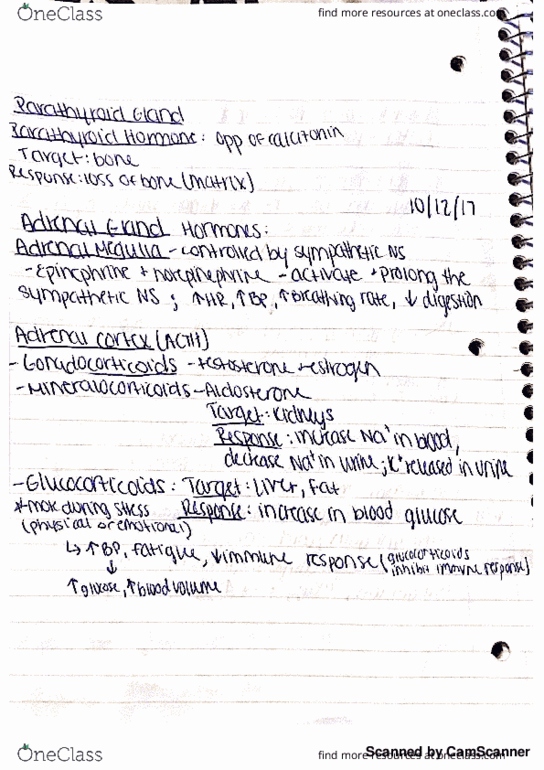 OneClass
find more resources at oneclass.com
Parathyroid Gland
Parathyroid Hormone: opp of calcitonin
Target: bone
Response: loss of bone (matrix)
10/12/17
Adrenal Gland Hormones:
Adrenal Medulla - controlled by sympathetic NS
- Epinephrine + norepinephrine - activate + prolong the
sympathetic NS ; ↑HR, ↑BP, ↑Breathing rate, ↓ digestion
Adrenal cortex (ACTH)
- Gonadocorticoids - testosterone + estrogen
- Mineralocorticoids - Aldosterone
Target: kidneys
Response: increase Na⁺ in blood,
decrease Na⁺ in urine; K⁺ released in urine
- Glucocorticoids: Target: Liver, Fat
*mor during stress Response: increase in blood glucose
(physical or emotional)
↳ ↑BP, fatigue, ↓immune response (glucocorticoids
inhibit immune response)
↓
↑glucose, ↑blood volume
OneClass
find more resources at oneclass.com
Scanned by CamScanner